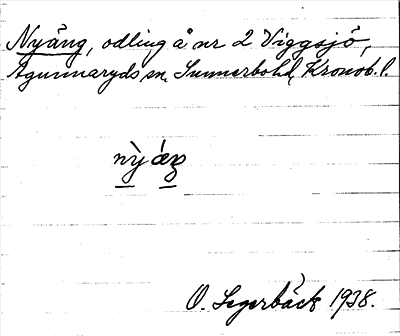 Nyäng, odling å nr 2 Viggsjö,
Agunnaryds sn, Sunnerbohd, Kronob. l.
nỳ áŋ
O. Legerbäck 1938.